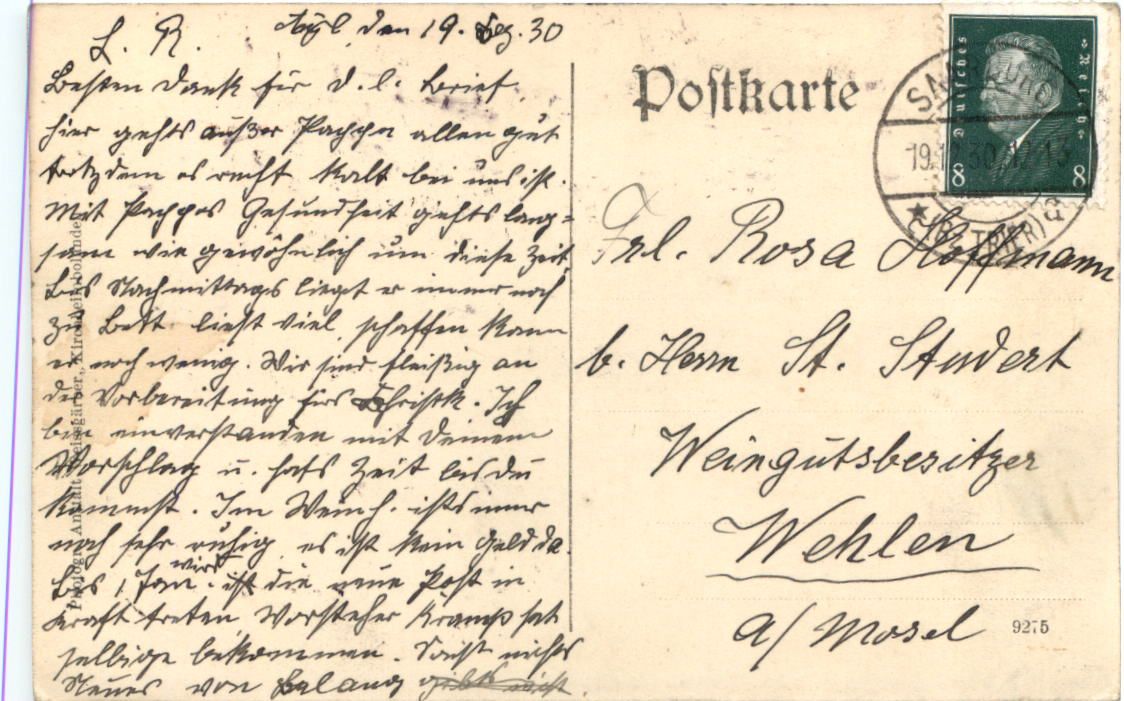 L. R. Ayl den 19. Dez. 30
Besten Dank für d. l. Brief.
hier gehts außer Pappa allen gut
trotzdem es recht kalt bei uns ist.
Mit Pappas Gesundheit gehts lang=
sam wie gewöhnlich um diese Zeit
bis Nachmittags liegt er immer noch
zu Bett. ließt viel, schaffen kann
er noch wenig. Wir sind fleißig an
der Vorbereitung fürs Christk. Ich
bin einverstanden mit Deinem
Vorschlag u. hats Zeit bis du
kommst. Im Weinh. ists immer
noch sehr ruhig, es ist kein Geld da.
Bis 1. Jan. wird die neue Post in
Kraft treten Vorsteher Kramp hat
selbige bekommen. Sonst nichts
Neues von Belang
Photogr. Anstalt Kirchheimbolanden
Postkarte
Deutsches Reich
8 8
SAARBURG
19.12.30. 12-13
(BZ. TRIER)
Frl. Rosa Hoffmann
b. Herrn St. Studert
Weingutsbesitzer
Wehlen
a/ Mosel
9275